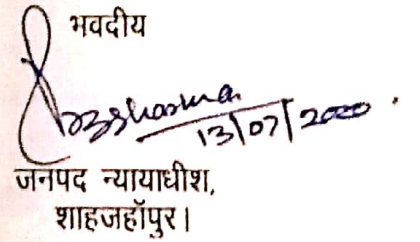 भवदीय
13/07/2020
जनपद न्यायाधीश,
शाहजहॉपुर।